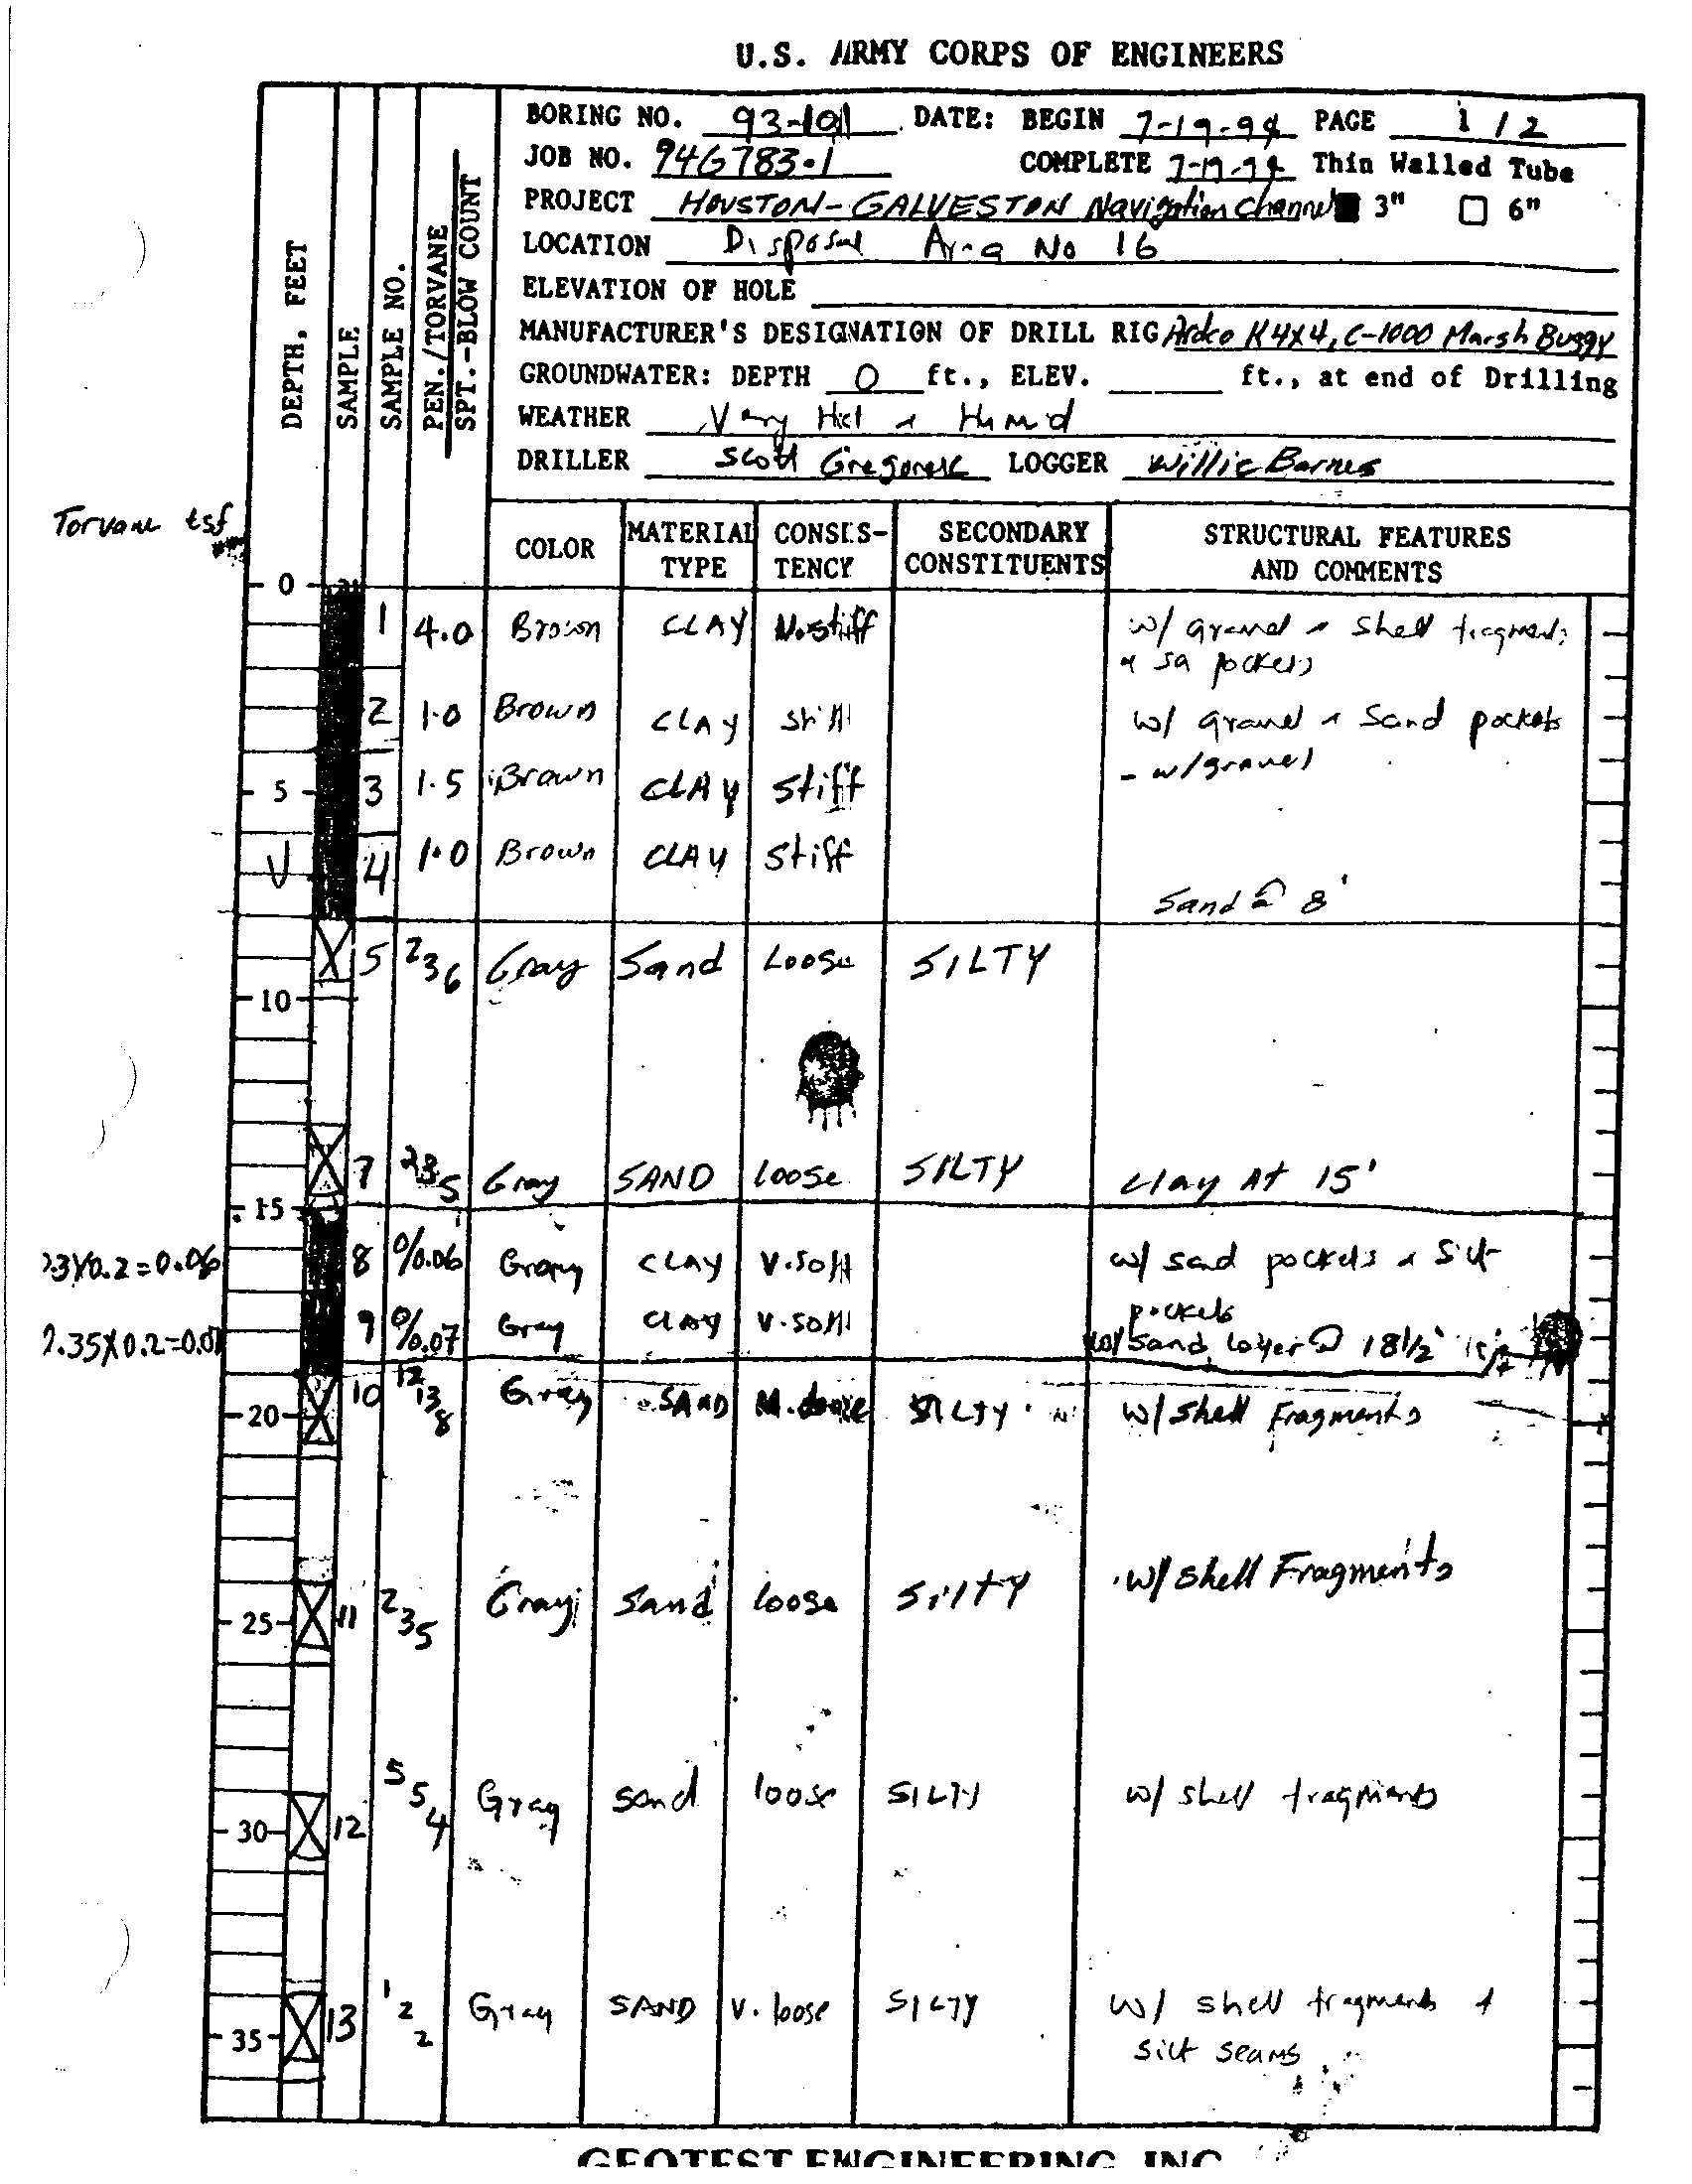 U.S. ARMY CORPS OF ENGINEERS
BORING NO. 93-101 DATE: BEGIN 7-19-94 PAGE 1 / 2
JOB NO. 94G783.1 COMPLETE 7-19-94 Thin Walled Tube
PROJECT HOUSTON-GALVESTON Navigation Channel 3" 6"
LOCATION Disposal Area No 16
ELEVATION OF HOLE
MANUFACTURER'S DESIGNATION OF DRILL RIG Ardco K4X4, C-1000 Marsh Buggy
GROUNDWATER: DEPTH 0 ft., ELEV. ft., at end of Drilling
WEATHER Very Hot & Humid
DRILLER Scott LOGGER Willie Barnes
DEPTH, FEET
SAMPLE
SAMPLE NO.
PEN./TORVANE
SPT.-BLOW COUNT
Torvane tsf
COLOR MATERIAL TYPE CONSIS-TENCY SECONDARY CONSTITUENTS STRUCTURAL FEATURES AND COMMENTS
0
1 4.0 Brown CLAY V.stiff w/ gravel & shell fragments
& sa pockets
2 1.0 Brown CLAY stiff w/ gravel & Sand pockets
- w/gravel
5 3 1.5 Brown CLAY stiff
4 1.0 Brown CLAY stiff
Sand @ 8'
5 2 3 6 Gray Sand Loose SILTY
10
7 2 3 5 Gray SAND loose SILTY clay At 15'
15
.3X0.2=0.06 8 0/0.06 Gray CLAY V.soft w/ sand pockets & silt
pockets
.35X0.2=0.07 9 0/0.07 Gray CLAY V.soft w/ sand layer @ 18 1/2'
10 12 13 8 Gray SAND M.dense SILTY w/ shell Fragments
20
25 11 2 3 5 Gray Sand loose SilTY w/ shell Fragments
30 12 5 5 4 Gray sand loose SILTY w/ shell fragments
35 13 1 2 2 Gray SAND V. loose SILTY w/ shell fragments &
silt seams
GEOTEST ENGINEERING, INC.